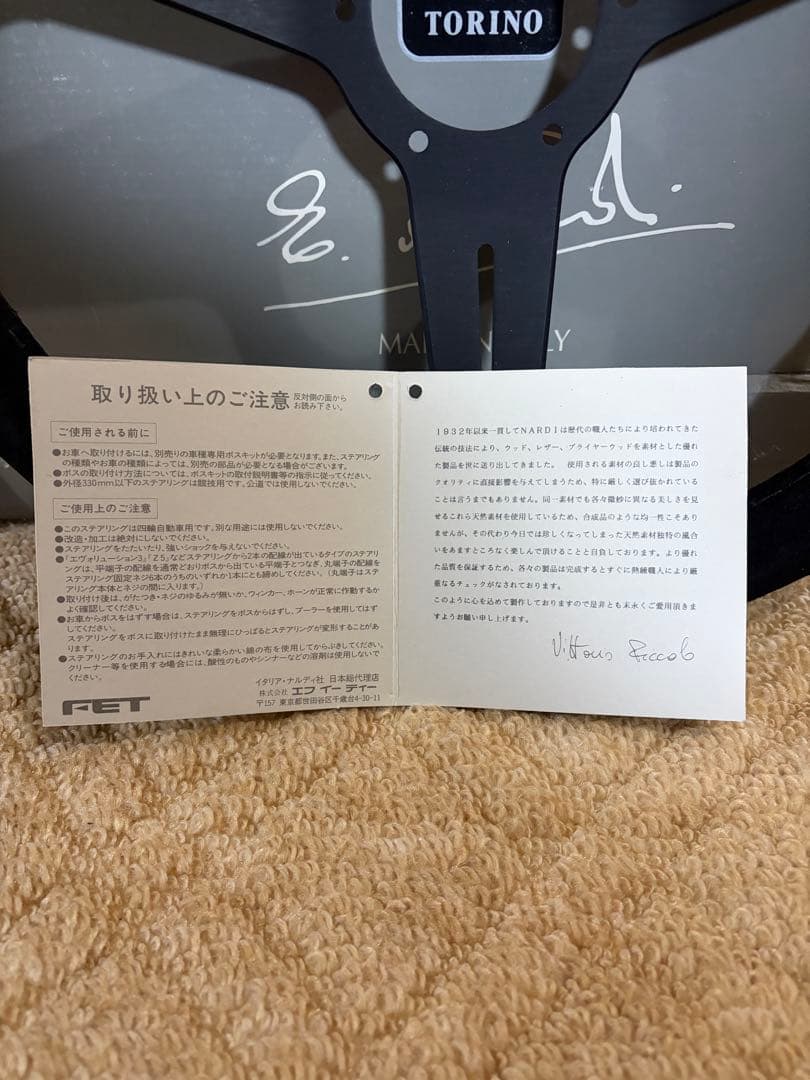 TORINO
取り扱い上のご注意 反対側の面からお読み下さい。
ご使用される前に
●お車へ取り付けるには、別売りの車種専用ボスキットが必要となります。また、ステアリング
の種類やお車の種類によっては、別売の部品が必要となる場合がございます。
●ボスの取り付け方法については、ボスキットの取付説明書等の指示に従ってください。
●外径330mm以下のステアリングは競技用です。公道では使用しないでください。
ご使用上のご注意
●このステアリングは四輪自動車用です。別な用途には使用しないでください。
●改造・加工は絶対にしないでください。
●ステアリングをたたいたり、強いショックを与えないでください。
●「エヴォリューション3」「Z5」などステアリングから2本の配線が出ているタイプのステアリ
ングは、平端子の配線を通常どおりボスから出ている平端子とつなぎ、丸端子の配線を
ステアリング固定ネジ6本のうちのいずれか1本にとも締めしてください。(丸端子はステ
アリング本体とネジの間に入ります。)
●取り付け後は、がたつき・ネジのゆるみが無いか、ウィンカー、ホーンが正常に作動するか
よく確認してください。
●お車からボスをはずす場合は、ステアリングをボスからはずし、プーラーを使用してはず
してください。
ステアリングをボスに取り付けたまま無理にひっぱるとステアリングが変形することがあ
ります。
●ステアリングのお手入れにはきれいな柔らかい綿の布を使用してからぶきしてください。
クリーナー等を使用する場合には、酸性のものやシンナーなどの溶剤は使用しないで
ください。
イタリア・ナルディ社 日本総代理店
株式会社 エフ イー ティー
〒157 東京都世田谷区千歳台4-30-11
FET
1932年以来一貫してNARDIは歴代の職人たちにより培われてきた
伝統の技法により、ウッド、レザー、ブライヤーウッドを素材とした優れ
た製品を世に送り出してきました。 使用される素材の良し悪しは製品の
クオリティに直接影響を与えてしまうため、特に厳しく選び抜かれている
ことは言うまでもありません。同一素材でも各々微妙に異なる美しさを見
せるこれら天然素材を使用しているため、合成品のような均一性こそあり
ませんが、その代わり今日では珍しくなってしまった天然素材独特の風合
いをあますところなく楽しんで頂けることと自負しております。より優れ
た品質を保証するため、各々の製品は完成するとすぐに熟練職人により厳
重なるチェックがなされております。
このように心を込めて製作しておりますので是非とも末永くご愛用頂きま
すようお願い申し上げます。